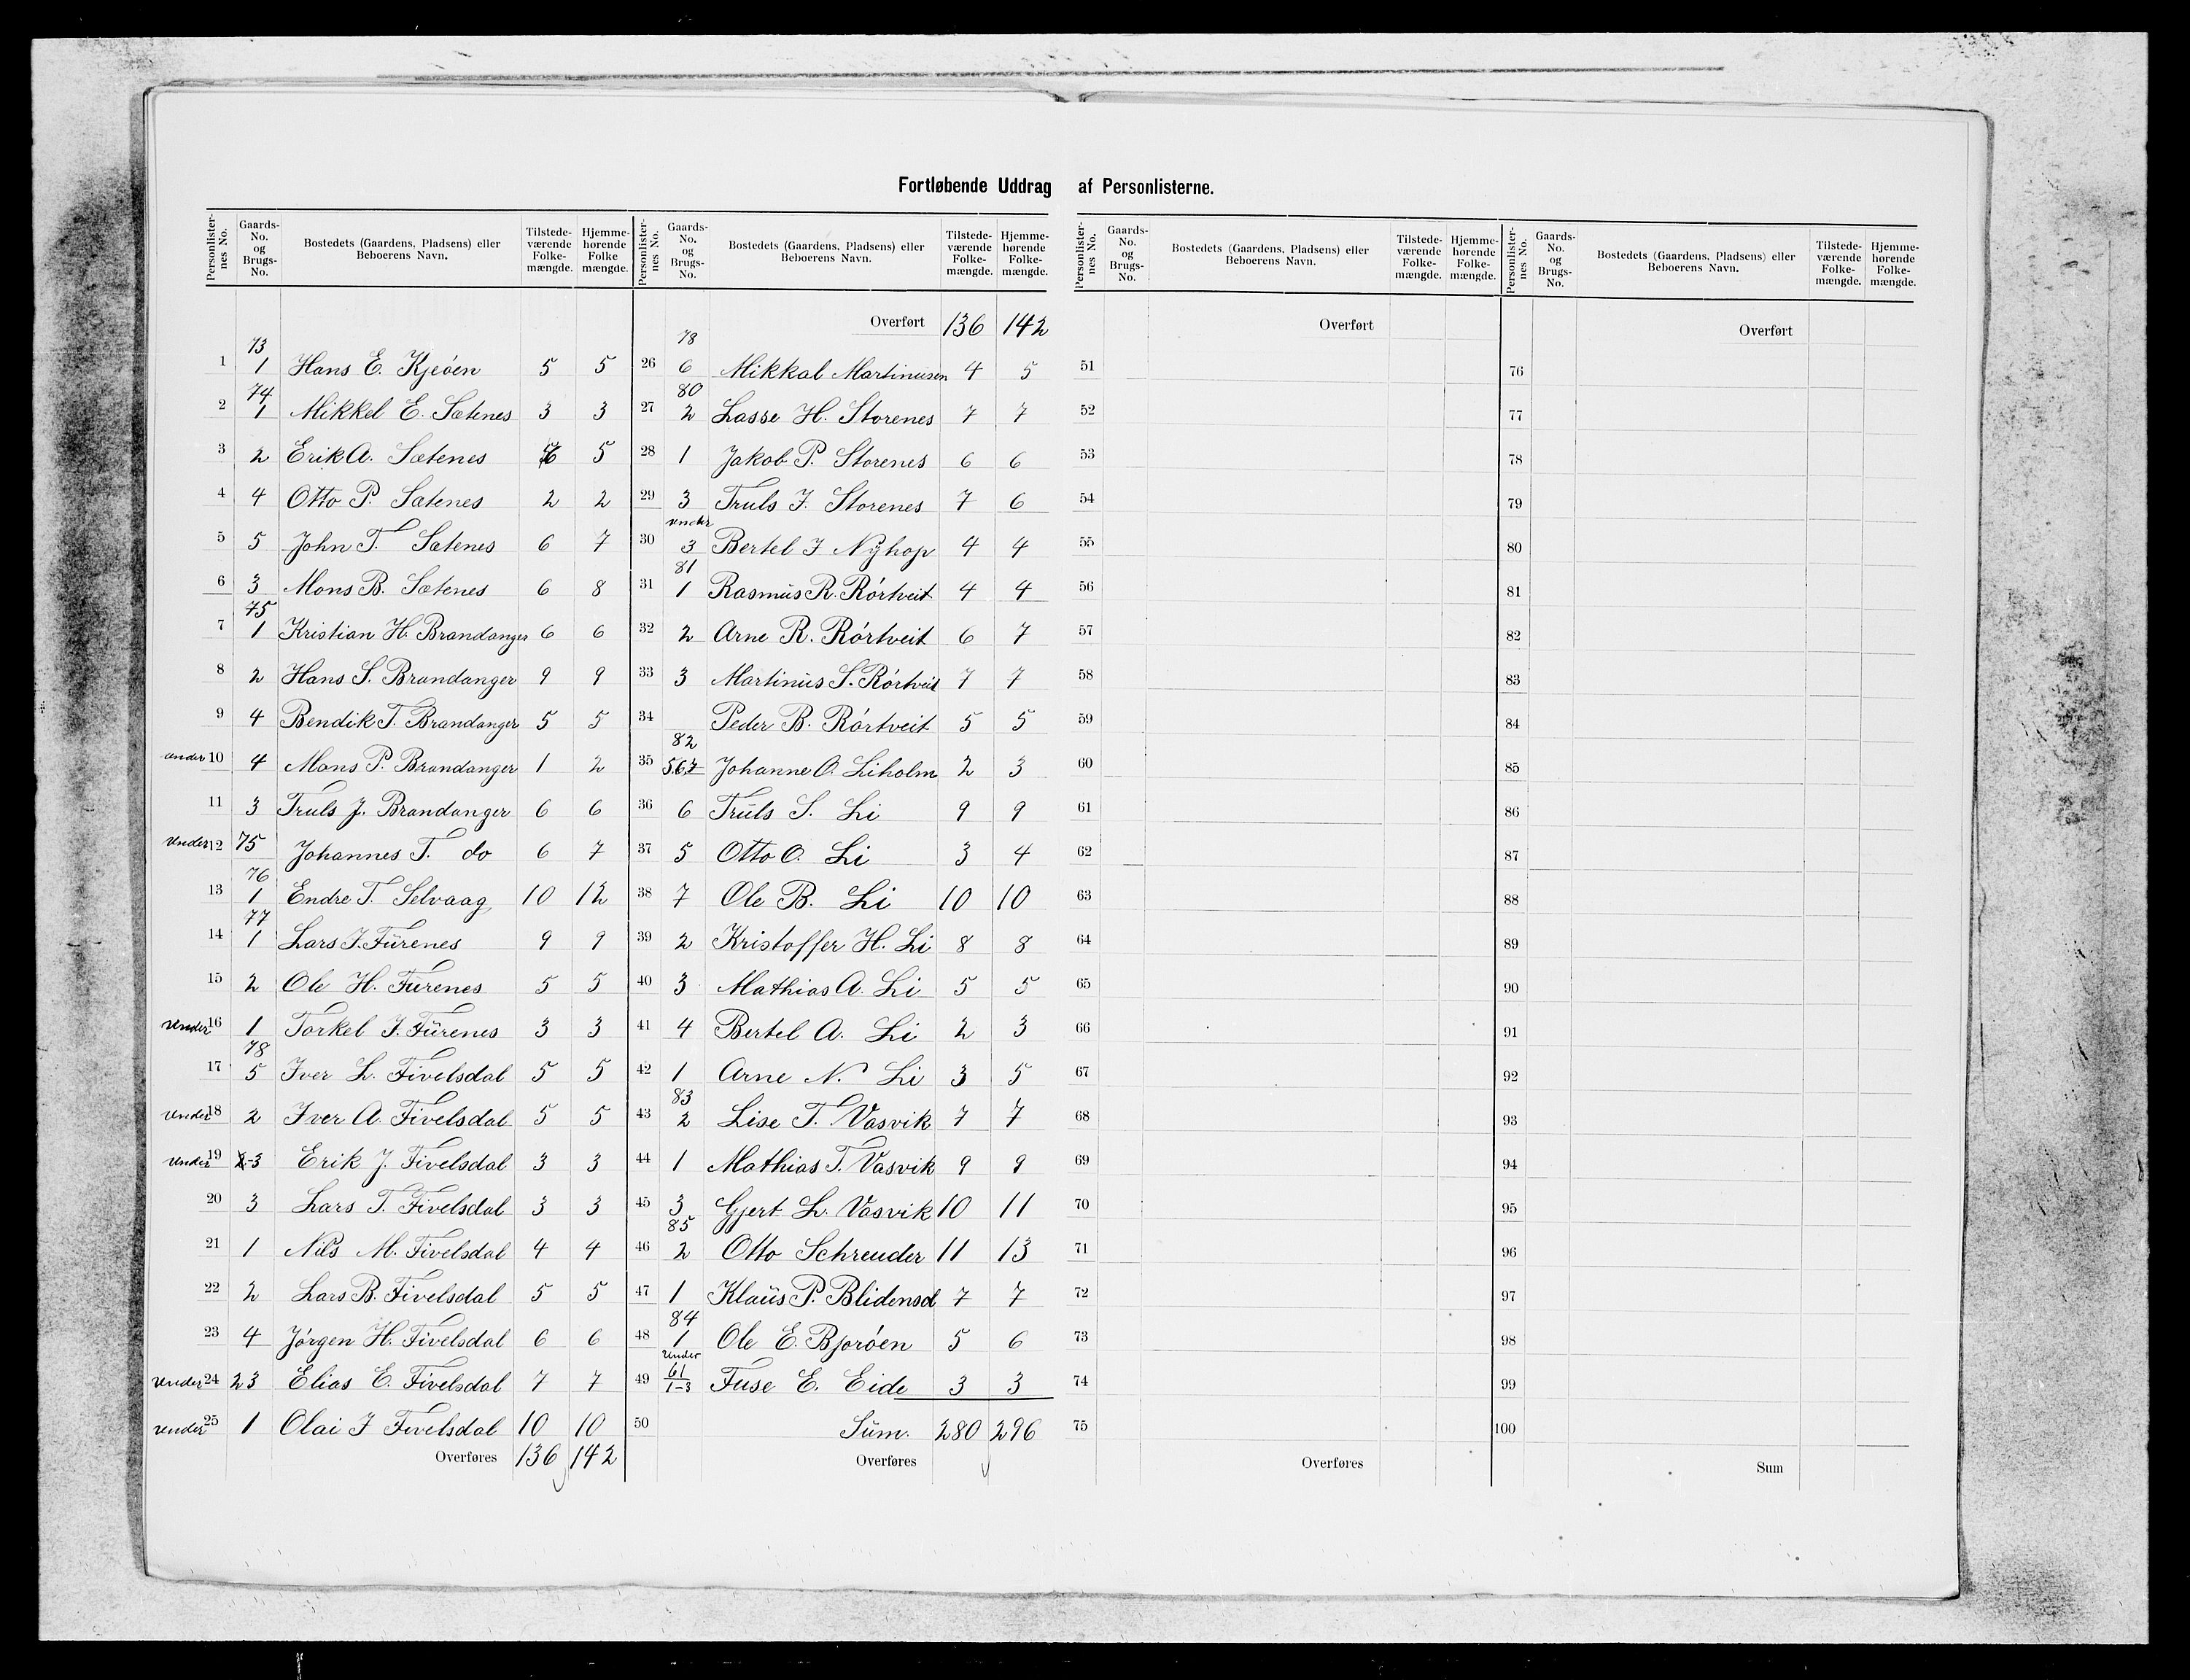 Fortløbende Uddrag af Personlisterne.
Personlister-nes No. | Gaards-No. og Brugs-No. | Bostedets (Gaardens, Pladsens) eller Beboerens Navn. | Tilstede-værende Folke-mængde. | Hjemme-hørende Folke mængde.
1 73 1 Hans E. Kjeöen 5 5
2 74 1 Mikkel E. Sætenes 3 3
3 2 Erik A. Sætenes 6 5
4 4 Otto P. Sætenes 2 2
5 5 John T. Sætenes 6 7
6 3 Mons B. Sætenes 6 8
7 75 1 Kristian H. Brandanger 6 6
8 2 Hans S. Brandanger 9 9
9 4 Bendik T. Brandanger 5 5
under 10 4 Mons P. Brandanger 1 2
11 3 Truls J. Brandanger 6 6
under 12 75 Johannes T. do 6 7
13 76 1 Endre T. Selvaag 10 12
14 77 1 Lars J. Fürenes 9 9
15 2 Ole H. Fürenes 5 5
under 16 1 Torkel J. Fürenes 3 3
17 78 5 Iver L. Fivelsdal 5 5
under 18 2 Iver A. Fivelsdal 5 5
under 19 2-3 Erik J. Fivelsdal 3 3
20 3 Lars T. Fivelsdal 3 3
21 1 Nils M. Fivelsdal 4 4
22 2 Lars B. Fivelsdal 5 5
23 4 Jørgen H. Fivelsdal 6 6
under 24 2 3 Elias E. Fivelsdal 7 7
under 25 1 Olai J Fivelsdal 10 10
Overføres 136 142
Personlister-nes No. | Gaards-No. og Brugs-No. | Bostedets (Gaardens, Pladsens) eller Beboerens Navn. | Tilstede-værende Folke-mængde. | Hjemme-hørende Folke-mængde.
Overført 136 142
26 78 6 Mikkal Martinusen 4 5
27 80 2 Lasse H. Storenes 7 7
28 1 Jakob P. Storenes 6 6
29 3 Truls J. Storenes 7 6
30 under 3 Bertel J Nyhop 4 4
31 81 1 Rasmüs R. Rórtveit 4 4
32 2 Arne R. Rórtveit 6 7
33 3 Martinüs S. Rórtveit 7 7
34 Peder B. Rórtveit 5 5
35 82 5,6,7 Johanne O. Liholm 2 3
36 6 Trüls S. Li 9 9
37 5 Otto O. Li 3 4
38 7 Ole B. Li 10 10
39 2 Kristoffer H. Li 8 8
40 3 Mathias A. Li 5 5
41 4 Bertel A. Li 2 3
42 1 Arne N. Li 3 5
43 83 2 Lise T. Vasvik 7 7
44 1 Mathias T. Vasvik 9 9
45 3 Gjert L. Vasvik 10 11
46 85 2 Otto Schreuder 11 13
47 1 Klaüs P. Blidensol 7 7
48 84 1 Ole E. Bjoröen 5 6
49 under 61 1-3 Fuse E. Eide 3 3
50 Süm. 280 296
Overføres
Personlister-nes No. | Gaards-No. og Brugs-No. | Bostedets (Gaardens, Pladsens) eller Beboerens Navn. | Tilstede-værende Folke-mængde. | Hjemme-hørende Folke-mængde.
Overført
51
52
53
54
55
56
57
58
59
60
61
62
63
64
65
66
67
68
69
70
71
72
73
74
75
Overføres
Personlister-nes No. | Gaards-No. og Brugs-No. | Bostedets (Gaardens, Pladsens) eller Beboerens Navn. | Tilstede-værende Folke-mængde. | Hjemme-hørende Folke-mængde.
Overført
76
77
78
79
80
81
82
83
84
85
86
87
88
89
90
91
92
93
94
95
96
97
98
99
100
Sum